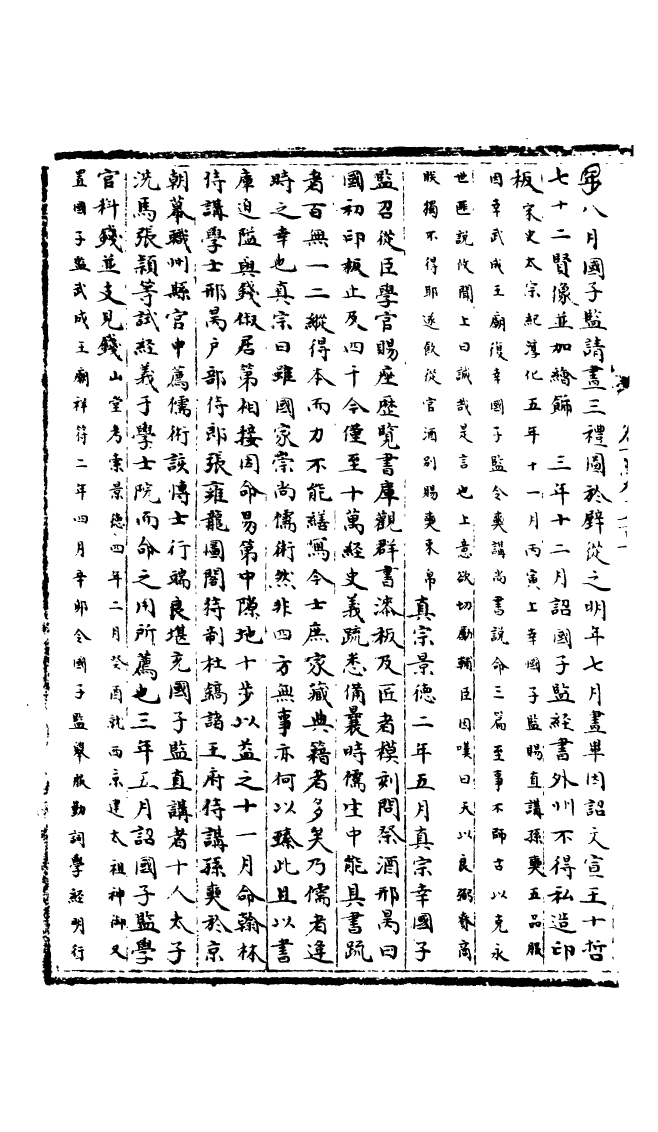 年八月國子監請畫三禮圖於壁從之明年七月畫畢因詔文宣王十哲
七十二賢像並加繪飾　三年十二月詔國子監經書外州不得私造印
板宋史太宗紀淳化五年十一月丙寅上幸國子監賜直講孫奭五品服
因幸武成王廟復幸國子監令奭講尚書說命三篇至事不師古以克永
世匪說攸聞上曰誠哉是言也上意欲切勵輔臣因嘆曰天以良弼賚商
朕獨不得耶遂飲從官酒別賜奭束帛　真宗景德二年五月真宗幸國子
監召從臣學官賜座歷覽書庫觀群書漆板及匠者模刻問祭酒邢昺曰
國初印板止及四千今僅至十萬經史義疏悉備曩時儒生中能具書疏
者百無一二縱得本而力不能繕寫今士庶家藏典籍者多矣乃儒者逢
時之幸也真宗曰雖國家崇尚儒術然非四方無事亦何以臻此且以書
庫迫隘與錢俶居第相接因命易第中隙地十步以益之十一月命翰林
侍講學士邢昺戶部侍郎張雍龍圖閣待制杜鎬諸王府侍講孫奭於京
朝幕職州縣官中薦儒術該博士行端良堪充國子監直講者十人太子
洗馬張穎等試經義于學士院而命之用所薦也三年五月詔國子監學
官料錢並支見錢山堂考索景德四年二月癸酉就西京建太祖神御又
置國子監武成王廟祥符二年四月辛卯令國子監舉服勤詞學經明行